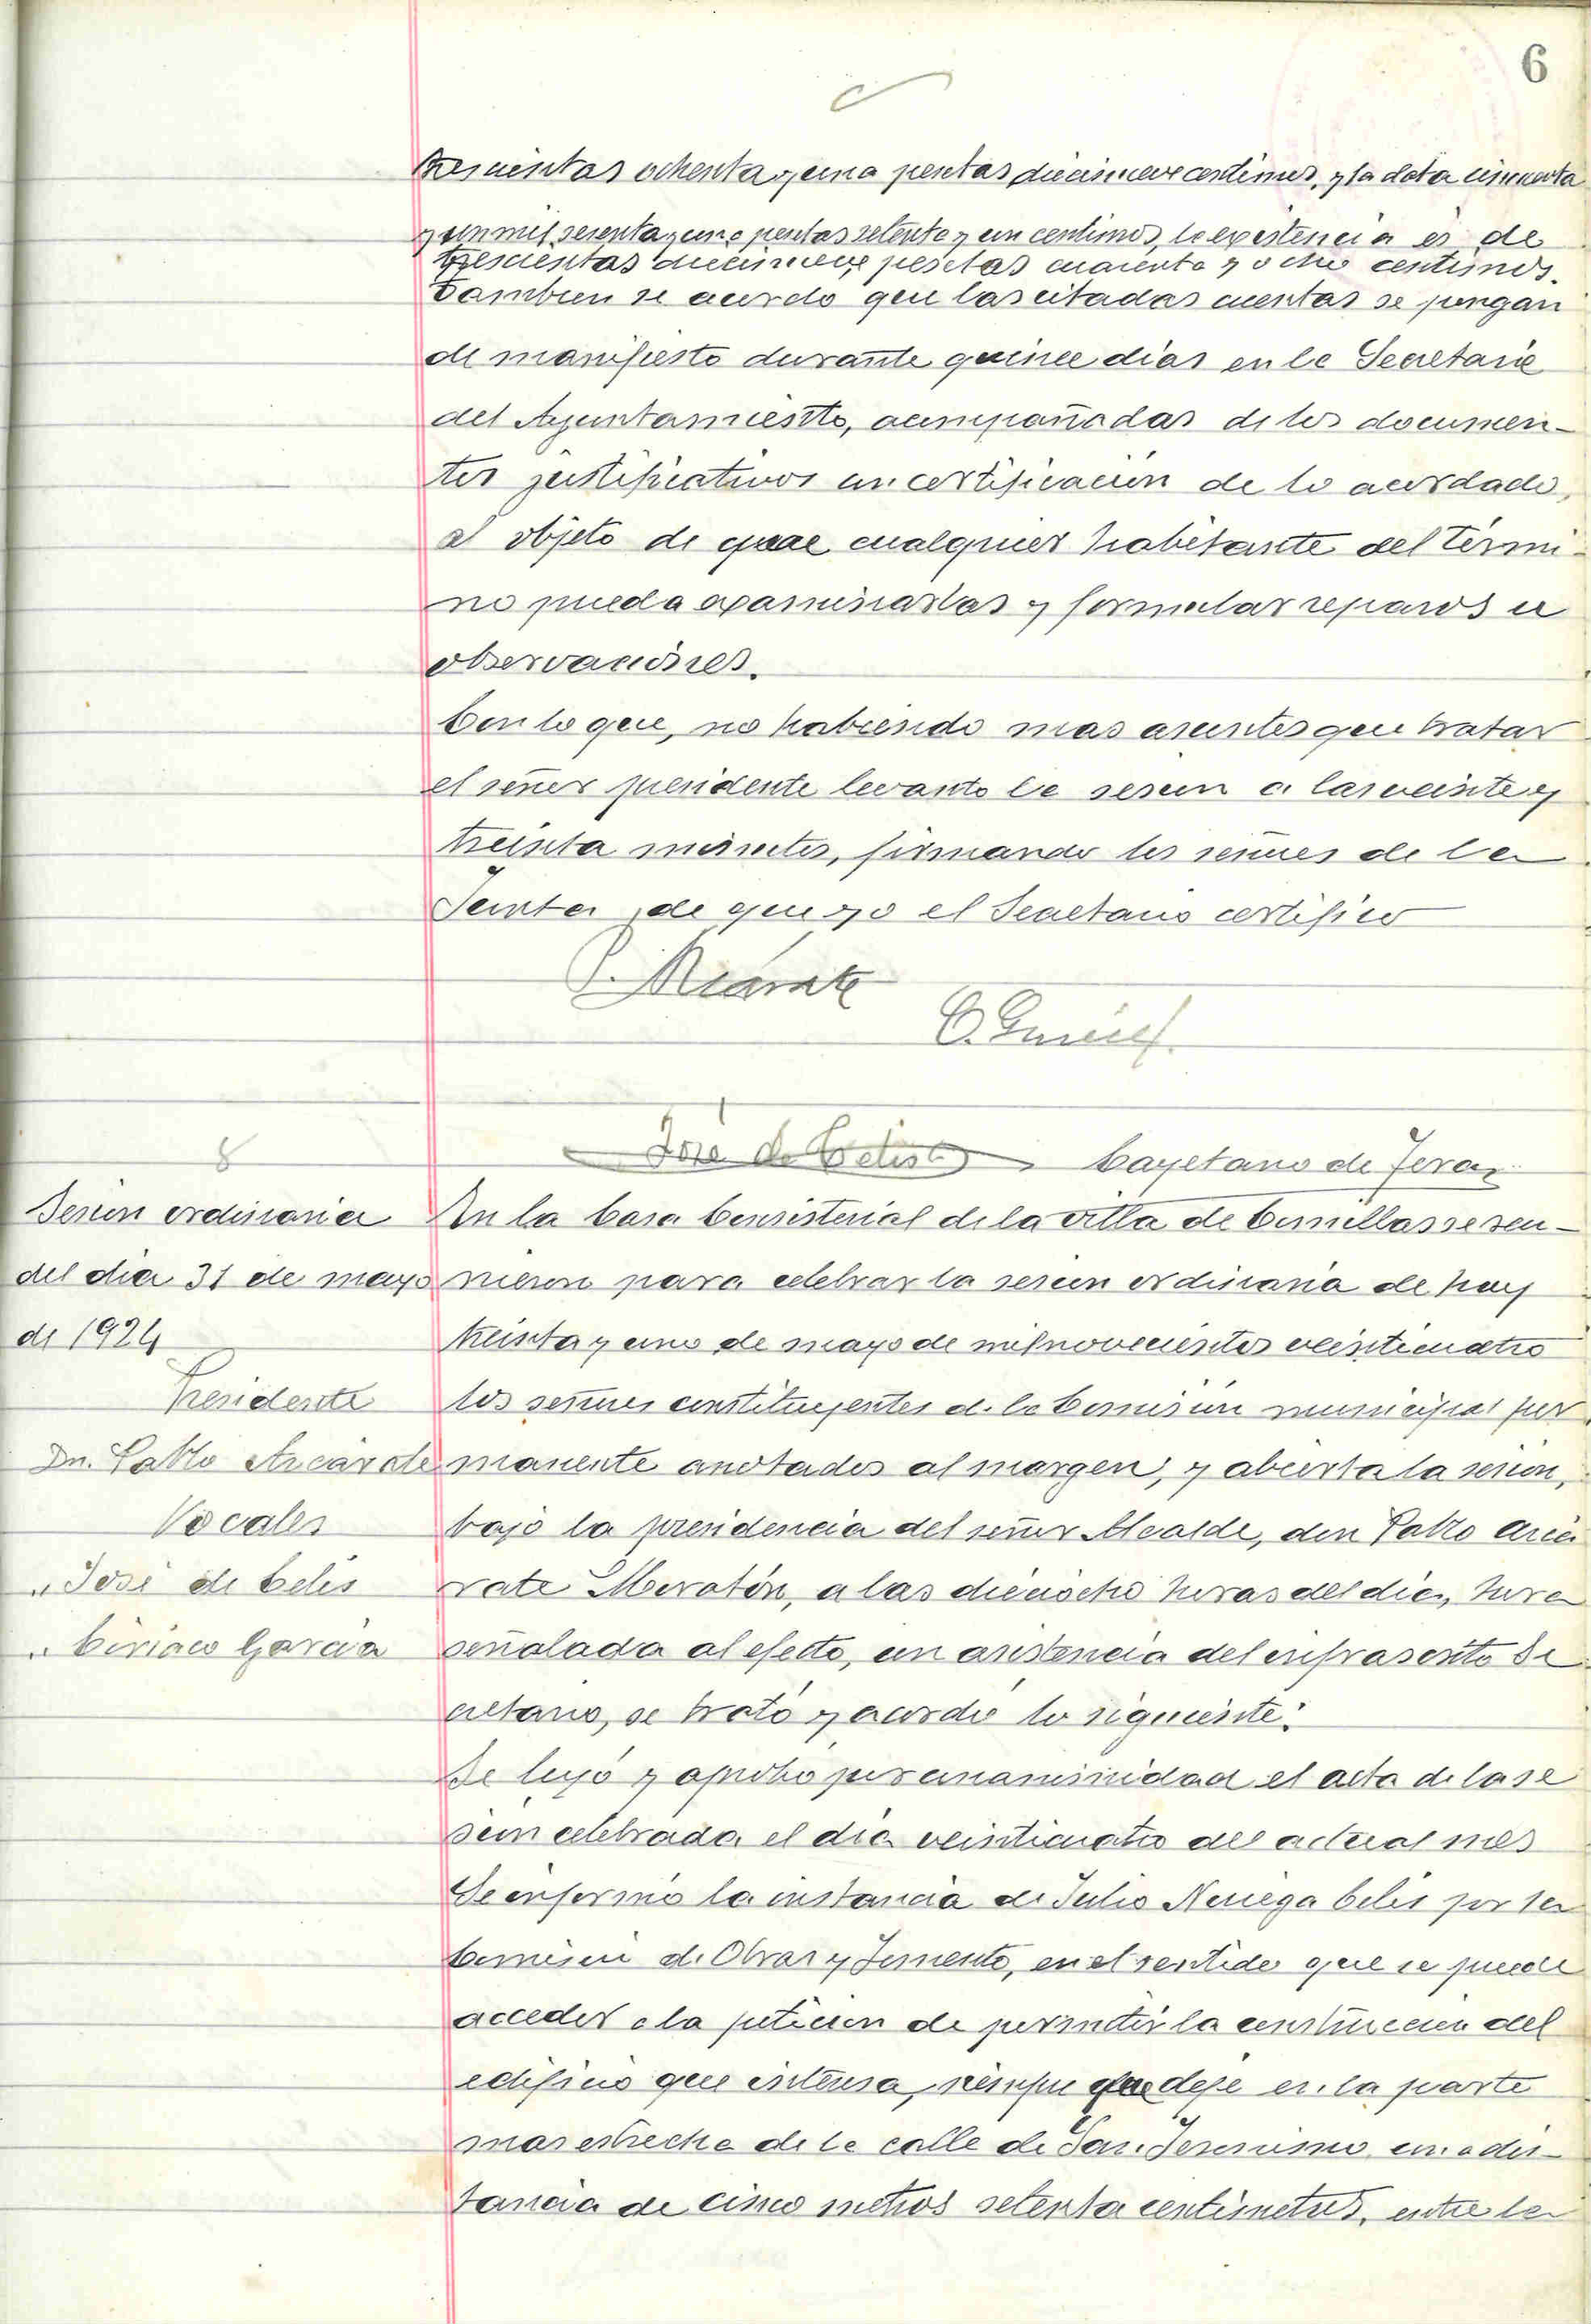 6
trescientas ochenta y una pesetas diecinueve centimos, y la data cincuenta
y un mil sesenta y una pesetas setenta y un centimos, la existencia es de
trescientas diecinueve pesetas cuarenta y ocho centimos.
Tambien se acordo que las citadas cuentas se pongan
de manifiesto durante quince dias en la Secretaria
del Ayuntamiento, acompañadas de los documen-
tos justificativos con certificacion de lo acordado,
al objeto de que cualquier habitante del termi-
no pueda examinarlas y formular reparos u
observaciones.
Con lo que, no habiendo mas asuntos que tratar
el señor presidente levanto la sesion a las veinte y
treinta minutos, firmando los señores de la
Junta, de que yo el Secretario certifico
P. Azcárate
C. García
José de Celis
Cayetano de Teran
8
Sesion ordinaria
del dia 31 de mayo
de 1924
Presidente
Dn. Pablo Azcárate
Vocales
" José de Celis
" Ciriaco Garcia
En la Casa Consistorial de la villa de Comillas se reu-
nieron para celebrar la sesion ordinaria de hoy
treinta y uno de mayo de mil novecientos veinticuatro
los señores constituyentes de la Comision municipal per
manente anotados al margen, y abierta la sesion,
bajo la presidencia del señor Alcalde, don Pablo Azcá
rate Moratón, a las dieciocho horas del dia, hora
señalada al efecto, con asistencia del infrascrito Se
cretario, se trató y acordó lo siguiente:
Se leyó y aprobó por unanimidad el acta de la se
sion celebrada el dia veinticuatro del actual mes
Se informó la instancia de Julio Noriega Celis por la
Comision de Obras y Fomento, en el sentido que se puede
acceder a la peticion de permitir la construccion del
edificio que interesa, siempre que deje en la parte
mas estrecha de la calle de San Jeronimo una dis-
tancia de cinco metros setenta centimetros, entre la